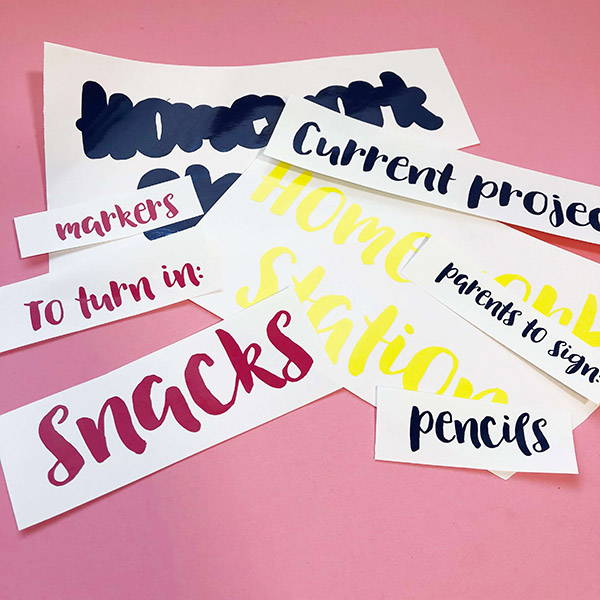 Current projec
markers
Home ork
Station
To turn in:
parents to sign:
snacks
pencils